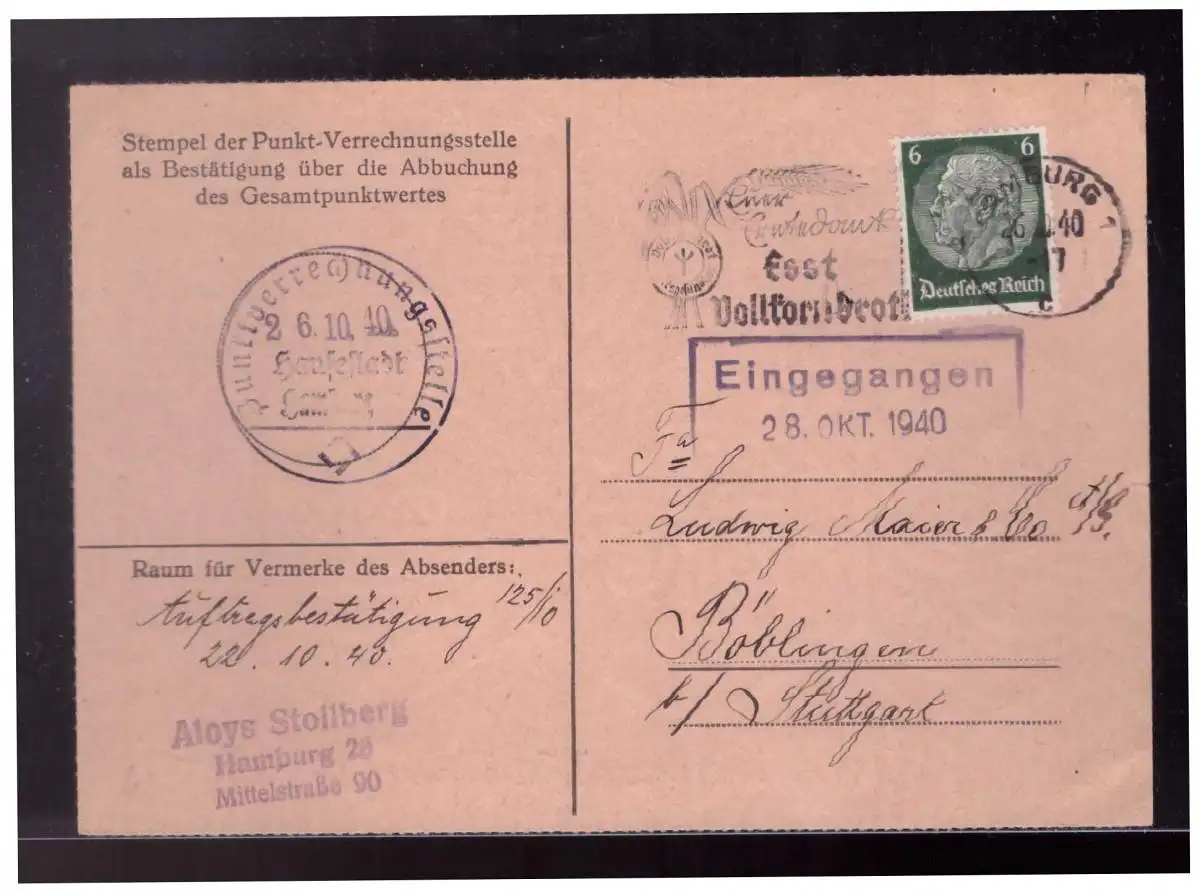 Stempel der Punkt-Verrechnungsstelle
als Bestätigung über die Abbuchung
des Gesamtpunktwertes
Punktverrechnungsstelle
2 6.10.40.
Hansestadt
Hamburg
Raum für Vermerke des Absenders:
Auftragsbestätigung 125/10
22. 10. 40.
Aloys Stollberg
Hamburg 26
Mittelstraße 90
6 6
Deutsches Reich
HAMBURG 1
40
-17
c
Euer
Erntedank
Esst
Vollkornbrot!
Eingegangen
28. OKT. 1940
Fa
Ludwig Maier & Co
Böblingen
b/ Stuttgart